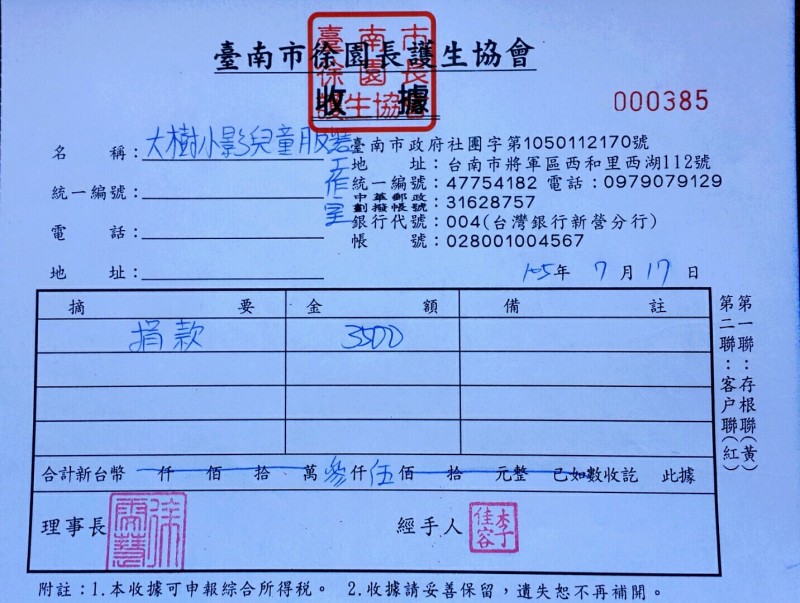 臺南市徐園長護生協會
收據
000385
名 稱：大樹小影兒童服裝工作室
統一編號：
電 話：
地 址：
臺南市政府社團字第1050112170號
地 址：台南市將軍區西和里西湖112號
統一編號：47754182 電話：0979079129
中華郵政劃撥帳號：31628757
銀行代號：004(台灣銀行新營分行)
帳 號：028001004567
105年 7月17日
摘 要 金 額 備 註
捐款 3500
合計新台幣 仟 佰 拾 萬參仟伍佰 拾 元整 已如數收訖 此據
理事長
經手人 李佳容
附註：1.本收據可申報綜合所得稅。 2.收據請妥善保留，遺失恕不再補開。
第一聯：存根聯(黃)
第二聯：客戶聯(紅)